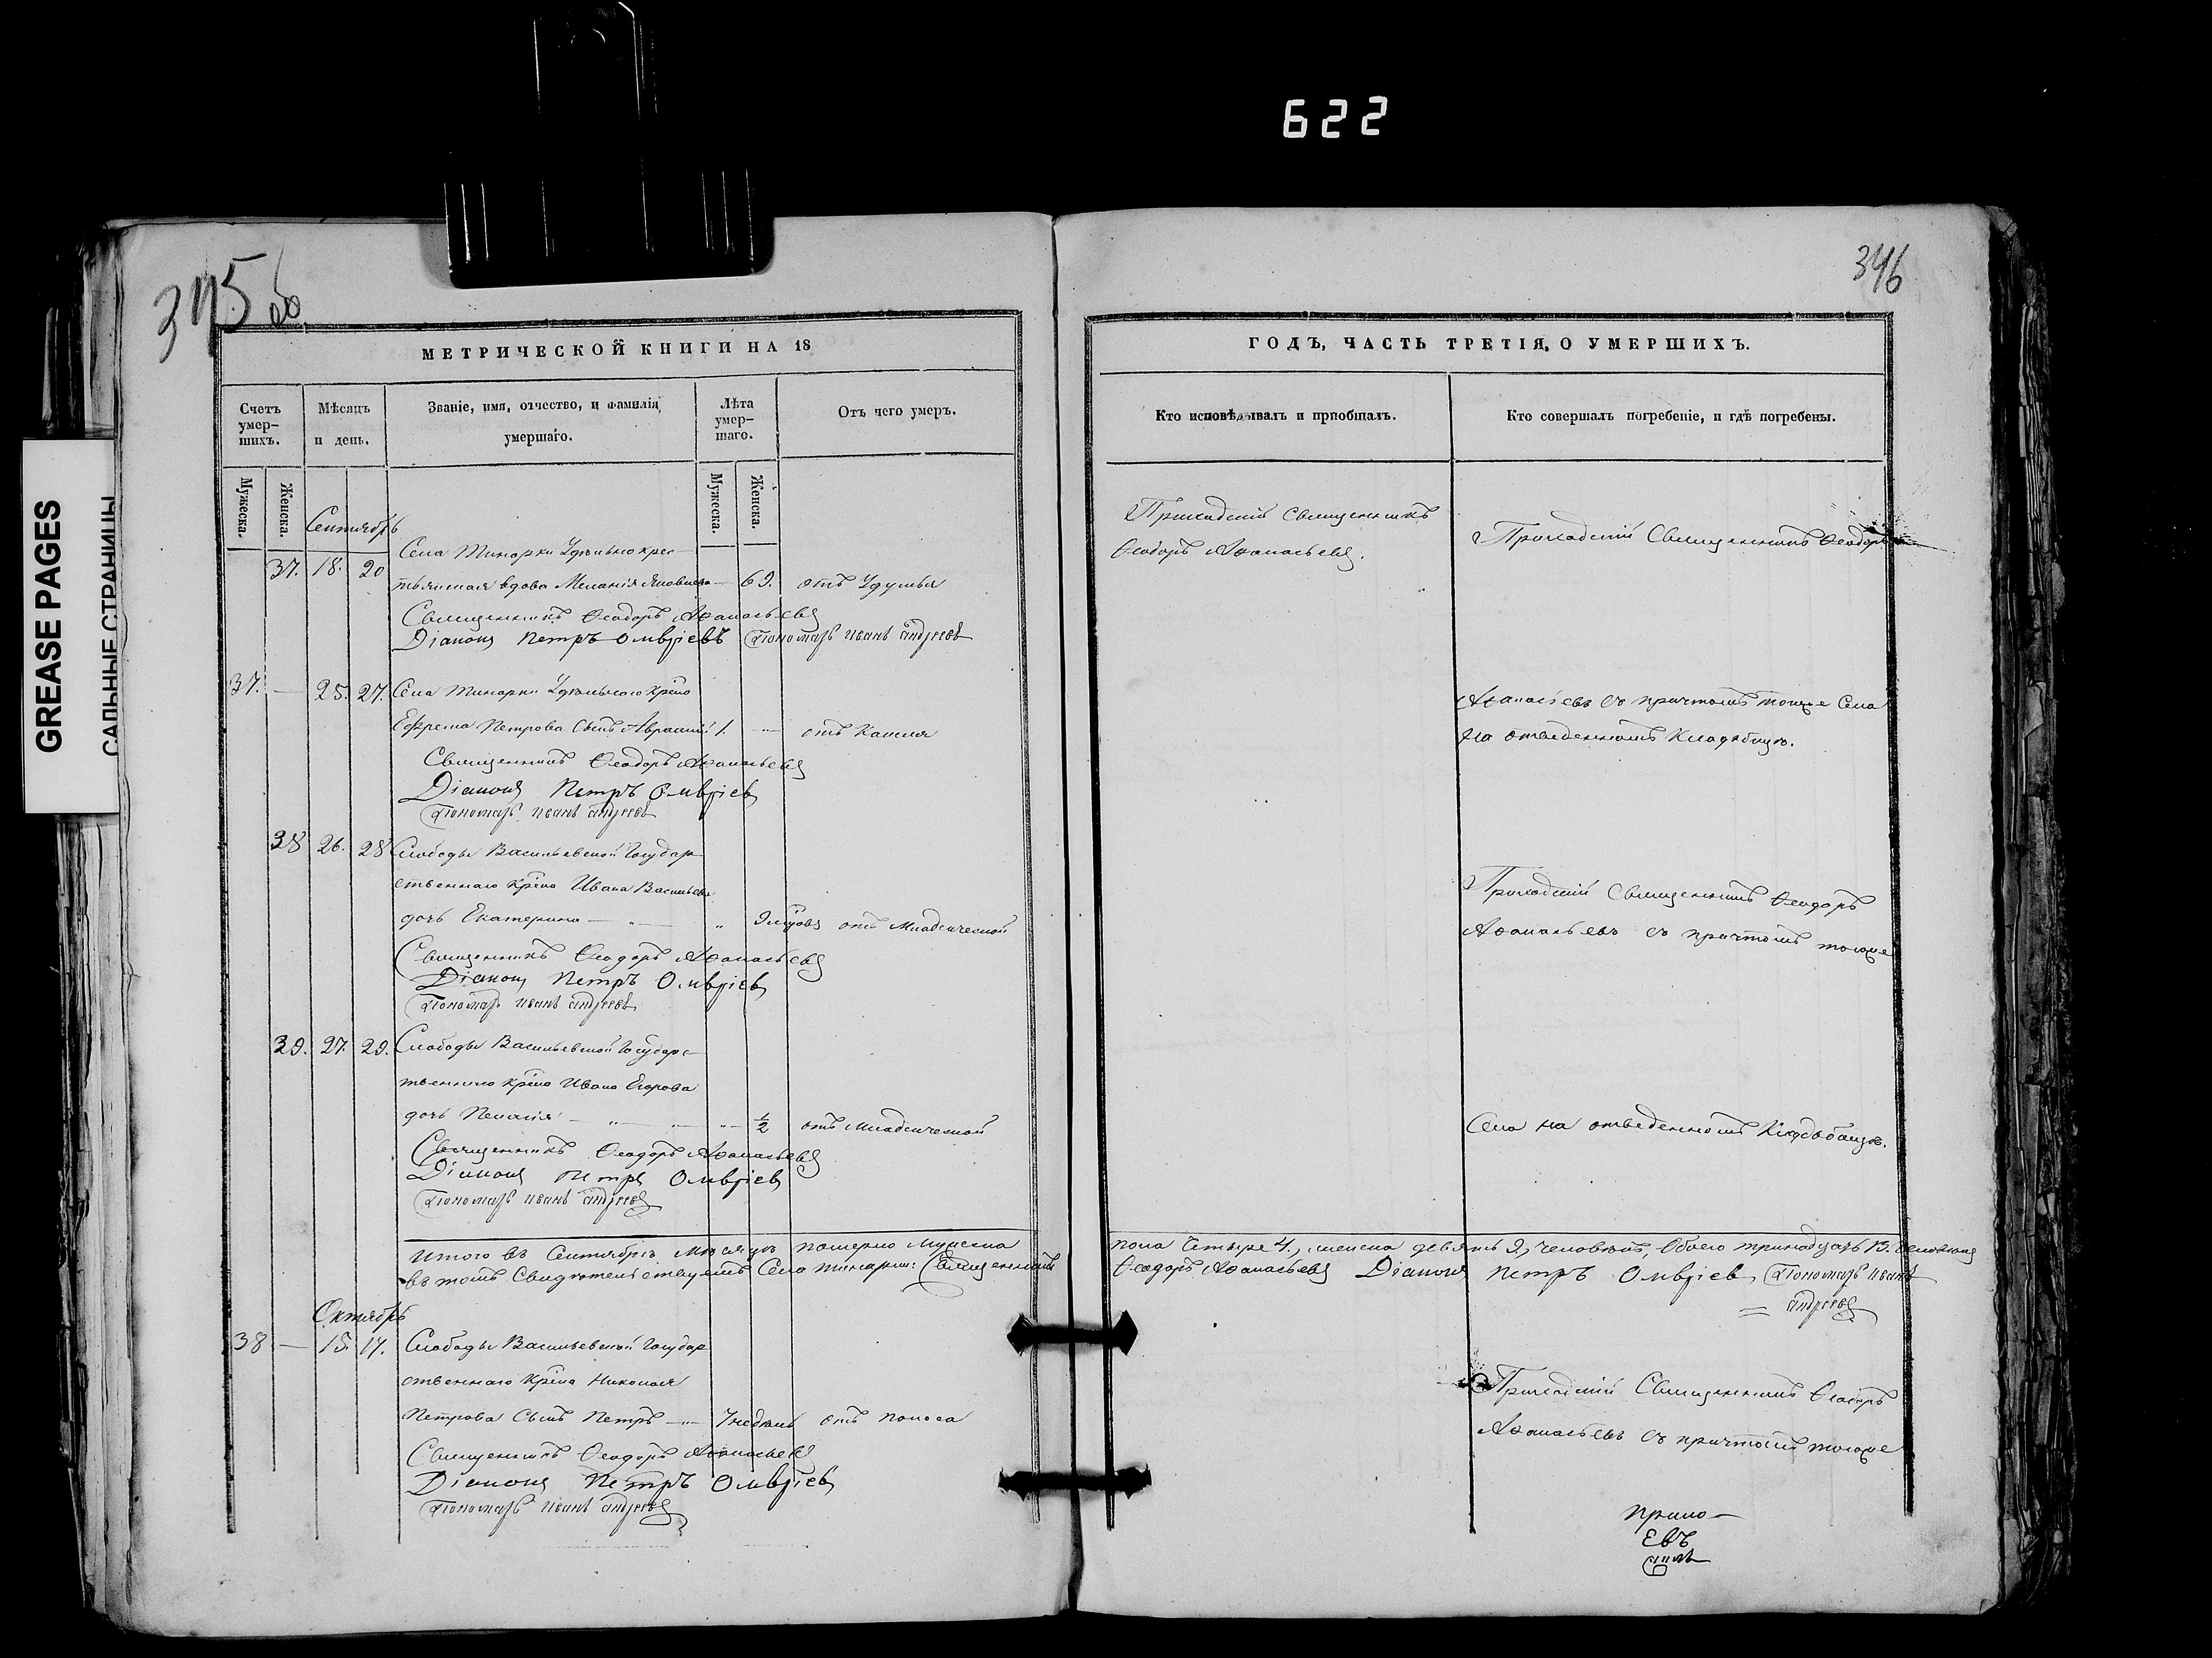 622
GREASE PAGES
САЛЬНЫЕ СТРАНИЦЫ
345 об
МЕТРИЧЕСКОЙ КНИГИ НА 18
Счетъ умер-
шихъ.
Мѣсяцъ
и день.
Званіе, имя, отчество, и фамилія
умершаго.
Лѣта
умер-
шаго.
Отъ чего умеръ.
Мужеска.
Женска.
Мужеска.
Женска.
Сентябрь
Села Тинарки Удѣльно крес-
37. 18. 20 тьянская вдова Меланія Яковлева — 69. отъ Удушья
Священникъ Ѳеодоръ Аѳанасьевъ
Діаконъ Петръ Омврiевъ Пономарь Иванъ Андреевъ
37. — 25. 27. Села Тинарки Удѣльнаго крѣно
Ефрема Петрова Сынъ Аврамий 1. — отъ Кашля
Священникъ Ѳеодоръ Аѳанасьевъ
Діаконъ Петръ Омврiевъ
Пономарь Иванъ Андреевъ
38 26. 28 Слободы Васильевской Государ-
ственнаго крѣна Ивана Васильева
дочь Екатерина — „ — „ 9 месяцовъ отъ Младенческой
Священникъ Ѳеодоръ Аѳанасьевъ
Діаконъ Петръ Омврiевъ
Пономарь Иванъ Андреевъ
39. 27. 29. Слободы Васильевской Государс-
твеннаго крѣна Ивана Егорова
дочь Пелагія — „ — „ — „ — 1/2 отъ Младенческой
Священникъ Ѳеодоръ Аѳанасьевъ
Діаконъ Петръ Омврiевъ
Пономарь Иванъ Андреевъ
Итого въ Сентябрѣ Мѣсяцѣ померло Мужеска
въ томъ Свидѣтельствуемъ Села Тинарки: Священникъ
Октябрь
38 — 15. 17. Слободы Васильевской Государ
ственнаго крѣна Николая
Петрова Сынъ Петръ — „ — 7 недѣль отъ поноса
Священникъ Ѳеодоръ Аѳанасьевъ
Діаконъ Петръ Омврiевъ
Пономарь Иванъ Андреевъ
346
ГОДЪ, ЧАСТЬ ТРЕТІЯ, О УМЕРШИХЪ.
Кто исповѣдывалъ и пріобщалъ.
Кто совершалъ погребеніе, и гдѣ погребены.
Приходскій Священникъ
Ѳеодоръ Аѳанасьевъ.
Приходскій Священникъ Ѳеодоръ
Аѳанасьевъ съ причтомъ тогоже Села
На отведенномъ Кладбищѣ.
Приходскій Священникъ Ѳеодоръ
Аѳанасьевъ съ причтомъ тогоже
Села на отведенномъ Кладбищѣ.
пола Четыре 4., женска девять 9, человѣкъ, Обоего тринадцать 13. человѣкъ
Ѳеодоръ Аѳанасьевъ Діаконъ Петръ Омврiевъ Пономарь Иванъ
= Андреевъ
Приходскій Священникъ Ѳеодоръ
Аѳанасьевъ съ причтомъ тогоже
Прихо-
Евъ